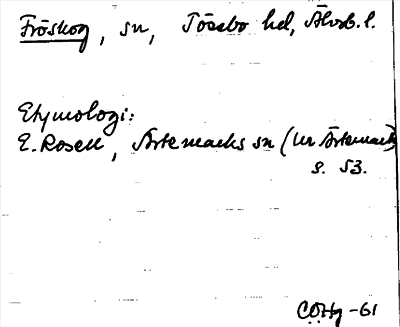 Fröskog, sn, Tössbo hd, Älvsb. l.
Etymologi:
E. Rosell, Ärtemarks sn (ur Ärtemark)
s. 53.
CÖHg -61